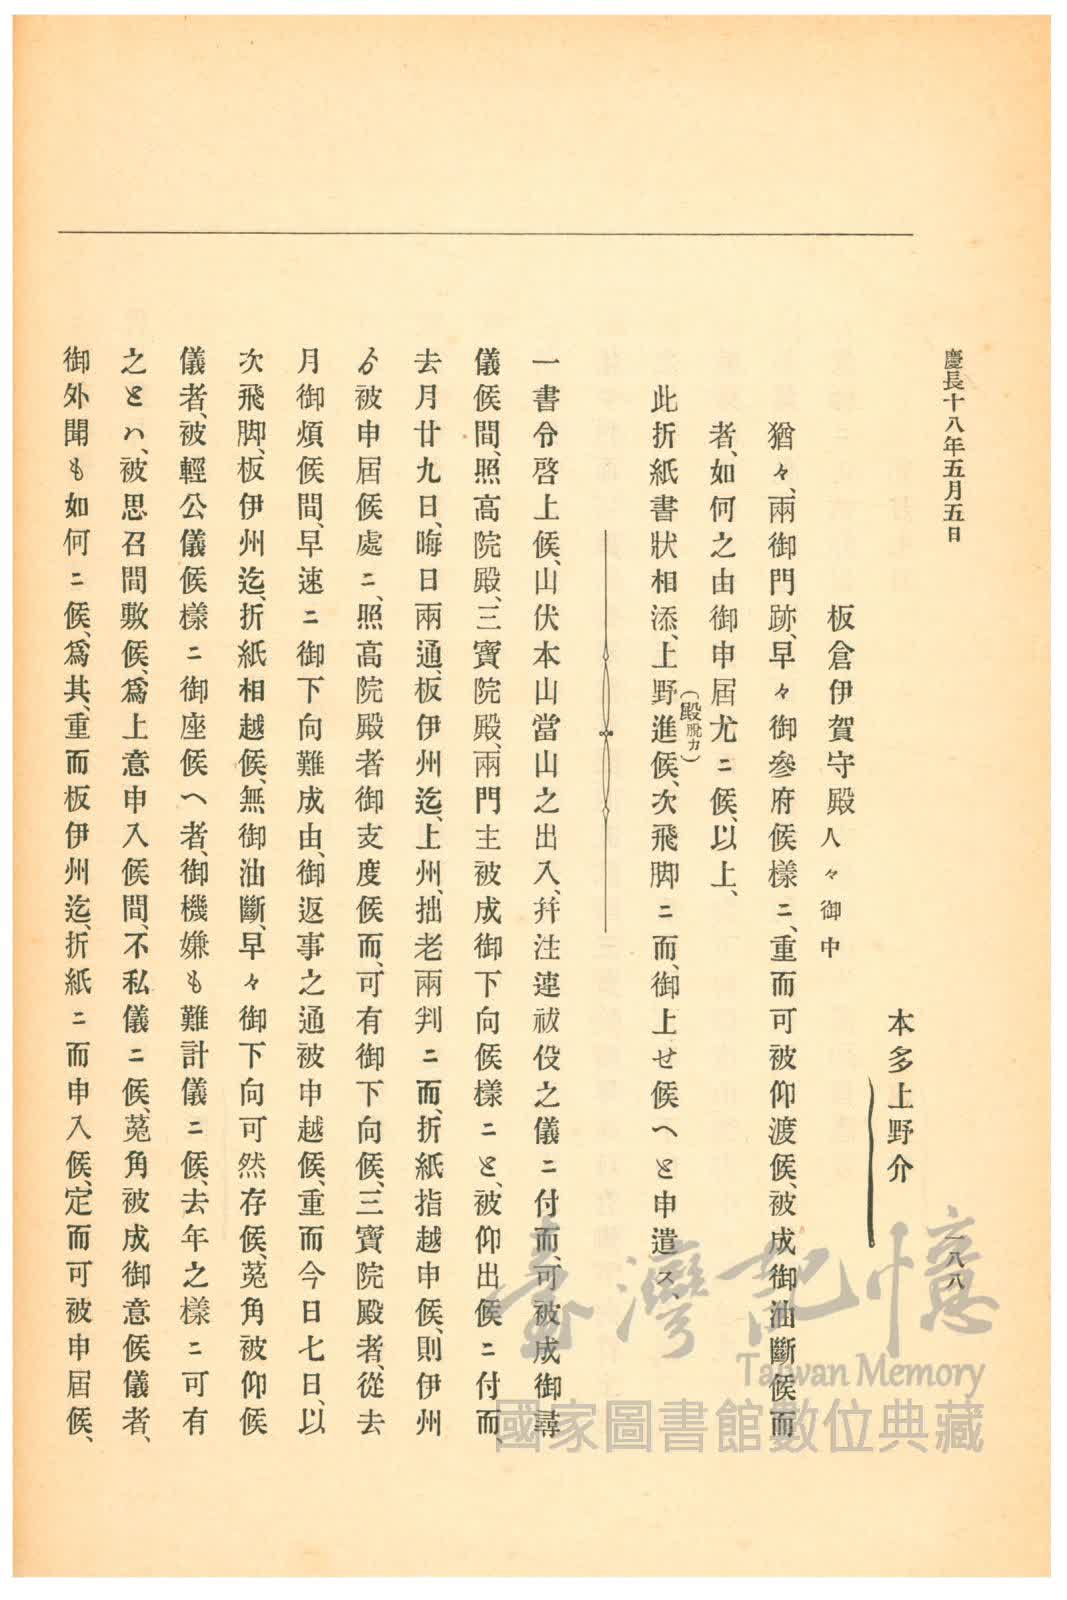 慶長十八年五月五日
一八八
本多上野介
板倉伊賀守殿人々御中
猶々、兩御門跡、早々御參府候樣ニ、重而可被仰渡候、被成御油斷候而
者、如何之由御申屆尤ニ候、以上、
此折紙書狀相添、上野進候、次飛脚ニ而、御上せ候へと申遣ス、
(殿脫カ)
一書令啓上候、山伏本山當山之出入、幷注連祓役之儀ニ付而、可被成御尋
儀候間、照高院殿、三寶院殿、兩門主被成御下向候樣ニと、被仰出候ニ付而、
去月廿九日、晦日兩通、板伊州迄、上州、拙老兩判ニ而、折紙指越申候、則伊州
ゟ被申屆候處ニ、照高院殿者御支度候而、可有御下向候、三寶院殿者、從去
月御煩候間、早速ニ御下向難成由、御返事之通被申越候、重而今日七日、以
次飛脚、板伊州迄、折紙相越候、無御油斷、早々御下向可然存候、菟角被仰候
儀者、被輕公儀候樣ニ御座候へ者、御機嫌も難計儀ニ候、去年之樣ニ可有
之とハ、被思召間敷候、爲上意申入候間、不私儀ニ候、菟角被成御意候儀者、
御外聞も如何ニ候、爲其、重而板伊州迄、折紙ニ而申入候、定而可被申屆候、
臺灣記憶
Taiwan Memory
國家圖書館數位典藏